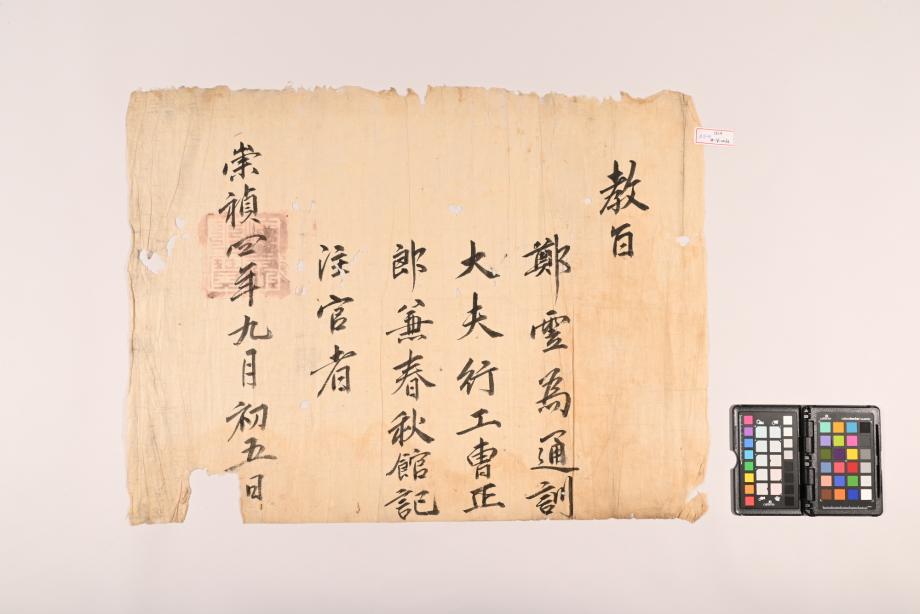 教旨
鄭 為通訓
大夫行工曹正
郎兼春秋館記
注官者
崇禎四年九月初五日